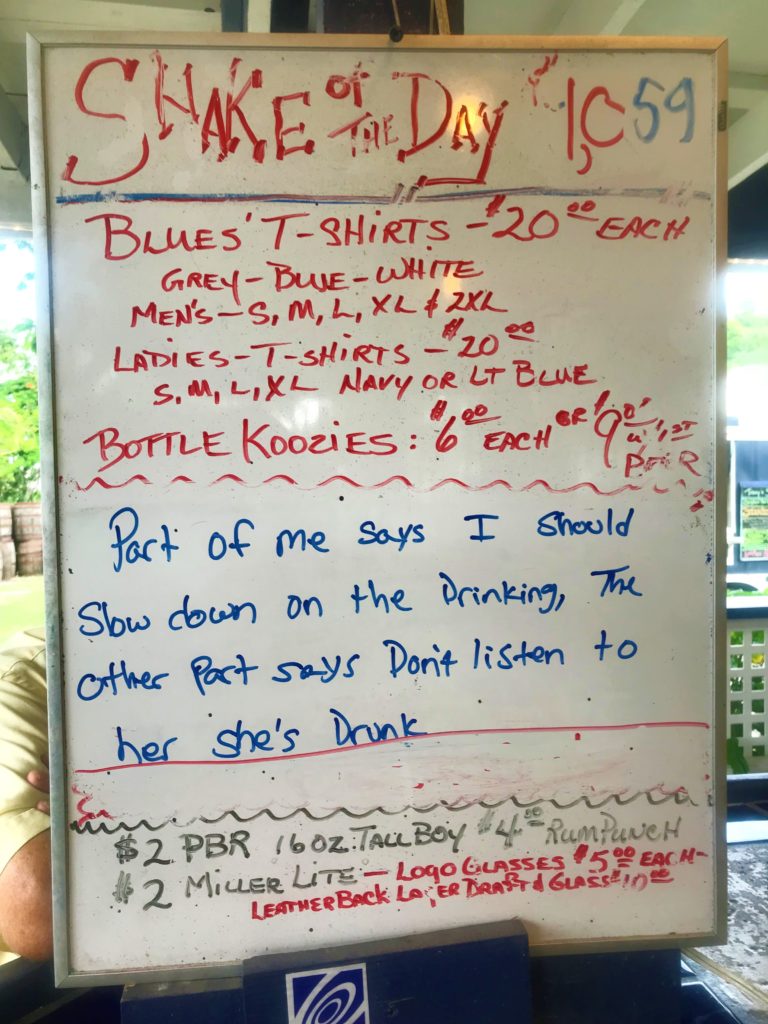 SHAKE OF THE DAY $1,059
BLUES' T-SHIRTS - $20.00 EACH
GREY - BLUE - WHITE
MEN'S - S, M, L, XL & 2XL
LADIES - T-SHIRTS - $20.00
S, M, L, XL NAVY OR LT BLUE
BOTTLE KOOZIES: $6.00 EACH OR $9
Part of me says I should
Slow down on the Drinking, The
other Part says Don't listen to
her she's Drunk
$2 PBR 16 OZ. TALL BOY $4.00 RUM PUNCH
$2 MILLER LITE - LOGO GLASSES $5.00 EACH -
LEATHERBACK LAGER DRAFT & GLASS $10.00